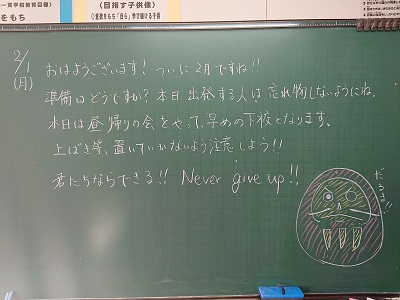 一貫学校教育目標)
(目指す子供像)
をもち
◇意欲をもち「自ら」学び続ける子供
2/1
(月)
おはようございます! ついに2月ですね!!
準備はどうですか? 本日 出発する人は、忘れ物しないようにね。
本日は昼帰りの会をやって、早めの下校となります。
上ばき等、置いていかないよう注意しよう!!
君たちならできる!! Never give up!!
だるま!!